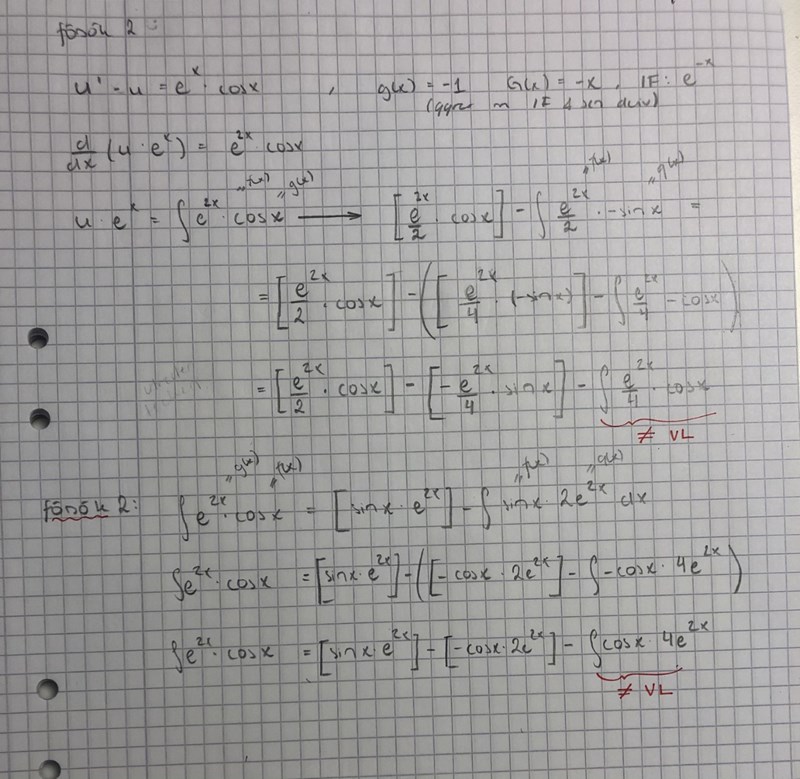 försök 2:
u' - u = eˣ · cosx , g(x) = -1 G(x) = -x , IF: e⁻ˣ
d/dx (u · eˣ) = e²ˣ · cosx
"f(x) "g(x) "f(x) "g(x)
u · eˣ = ∫ e²ˣ · cosx ⟶ [e²ˣ/2 · cosx] - ∫ e²ˣ/2 · -sinx =
= [e²ˣ/2 · cosx] - ([e²ˣ/4 · (-sinx)] - ∫ e²ˣ/4 · -cosx)
= [e²ˣ/2 · cosx] - [-e²ˣ/4 · sinx] - ∫ e²ˣ/4 · cosx
≠ VL
"g(x) "f(x) "f(x) "g(x)
försök 2: ∫ e²ˣ · cosx = [sinx · e²ˣ] - ∫ sinx · 2e²ˣ dx
∫e²ˣ · cosx = [sinx · e²ˣ] - ([-cosx · 2e²ˣ] - ∫ -cosx · 4e²ˣ)
∫e²ˣ · cosx = [sinx · e²ˣ] - [-cosx · 2e²ˣ] - ∫cosx · 4e²ˣ
≠ VL